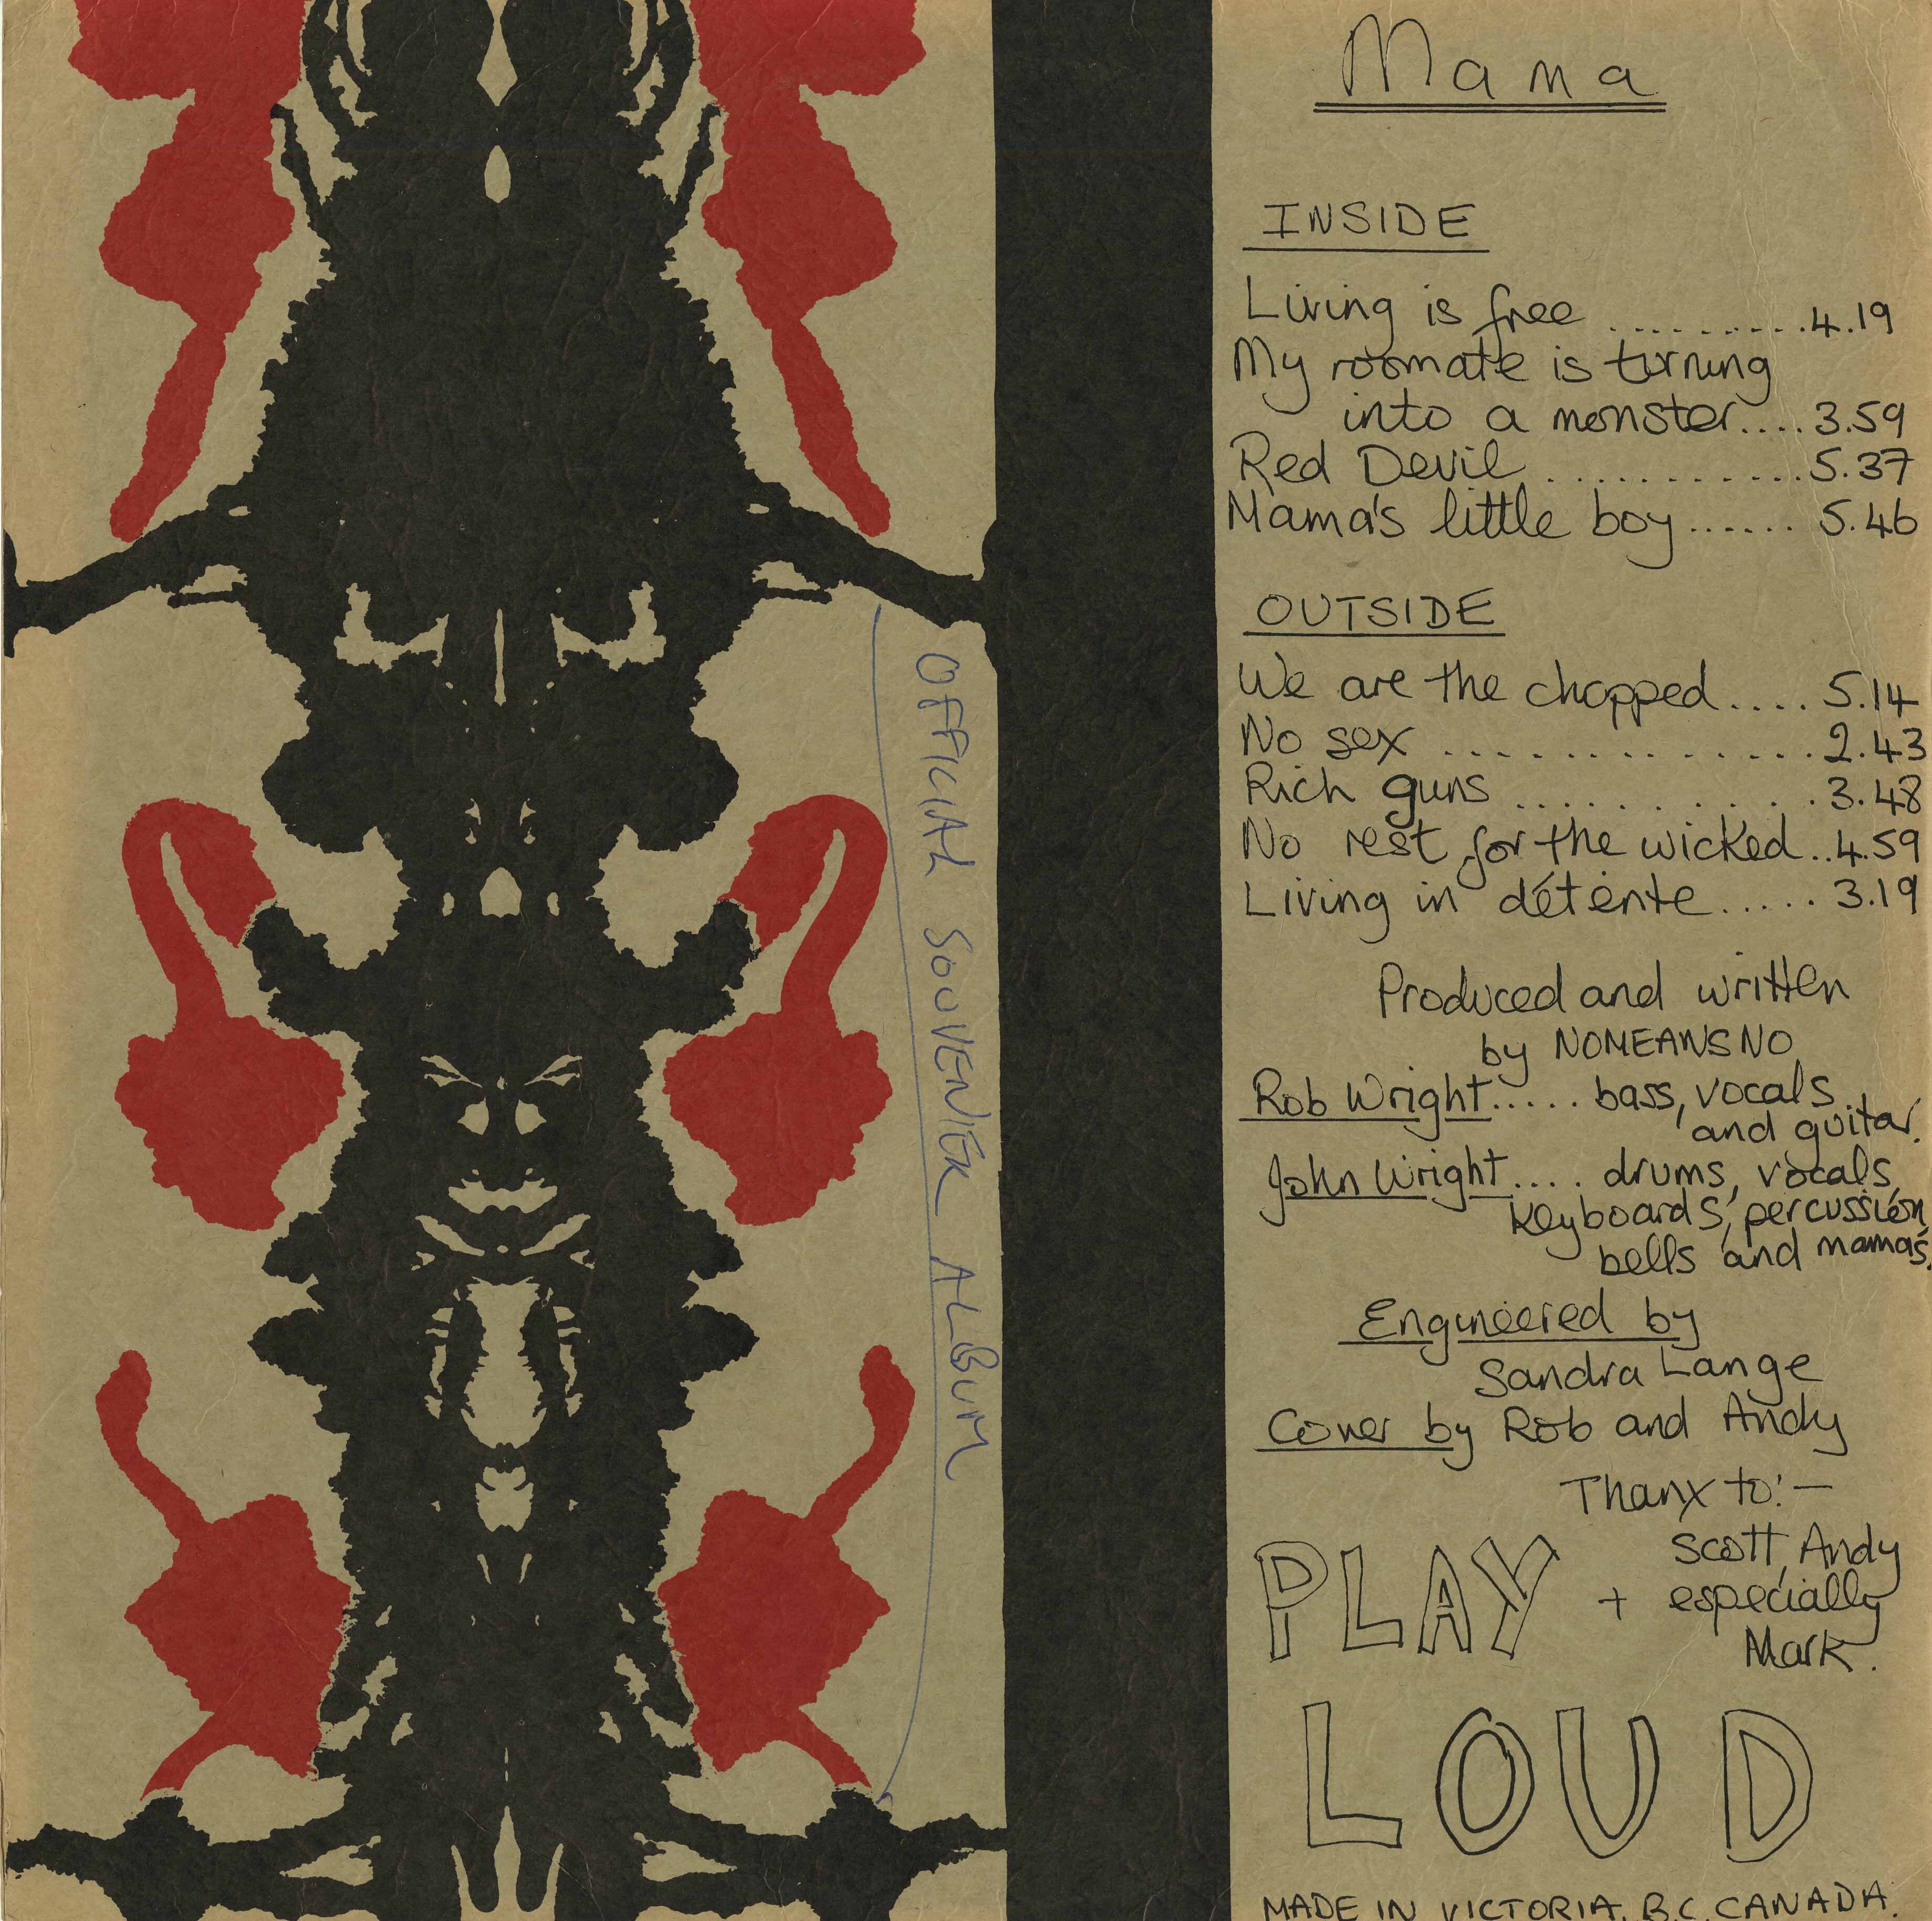 OFFICIAL SOUVENIER ALBUM
Mama
INSIDE
Living is free ..........4.19
My roomate is turning
into a monster....3.59
Red Devil ............5.37
Mama's little boy...... 5.46
OUTSIDE
We are the chopped.... 5.14
No sex ..............2.43
Rich guns ...........3.48
No rest for the wicked..4.59
Living in détente..... 3.19
Produced and written
by NOMEANSNO
Rob Wright..... bass, vocals
and guitar.
John Wright.... drums, vocals,
keyboards, percussion,
bells and mamas.
Engineered by
Sandra Lange
Cover by Rob and Andy
Thanx to:—
Scott, Andy
+ especially
Mark.
PLAY
LOUD
MADE IN VICTORIA, B.C. CANADA.